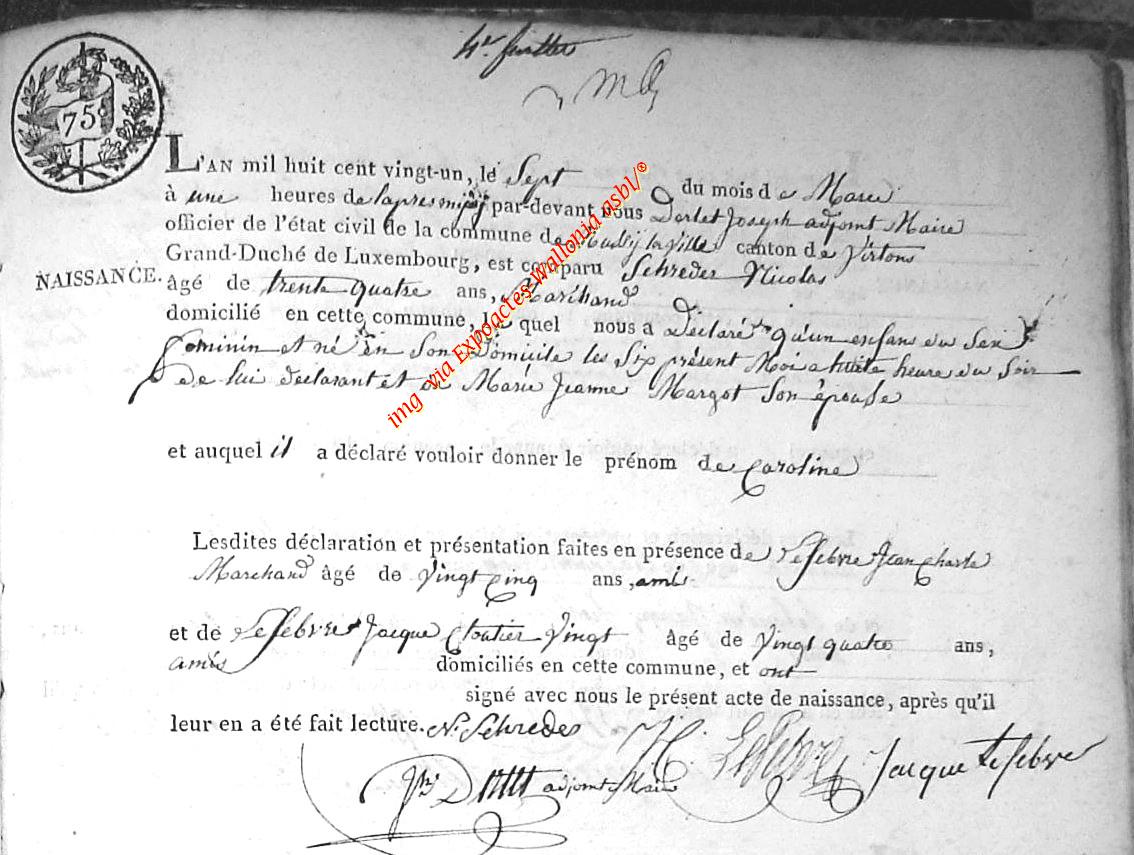 4e feuillet
75c
L'AN mil huit cent vingt-un, le Sept du mois de Mars
à une heures de lapres midi par-devant nous Derlet Joseph adjoint Maire
officier de l'état civil de la commune de Mussy la ville canton de Virtons
Grand-Duché de Luxembourg, est comparu Schreder Nicolas
NAISSANCE.
âgé de trente quatre ans, Marchand
domicilié en cette commune, le quel nous a Déclaré qu'un enfans du Sex
feminin et né en Son Domicile les Six présent Mois a huite heure du Soir
de lui déclarant et de Marie Jeanne Margot Son épouse
et auquel il a déclaré vouloir donner le prénom de Caroline
Lesdites déclaration et présentation faites en présence de Lefebvre Jean Charle
Marchand âgé de Vingt Cinq ans, amis
et de Lefebvre Jacque Cloutier Vingt âgé de Vingt quatre ans,
amis domiciliés en cette commune, et ont
signé avec nous le présent acte de naissance, après qu'il
leur en a été fait lecture. N. Schreder
Lefebvre Jacque Lefebvre
adjoint Maire
img via Expoactes-Wallonia asbl/®